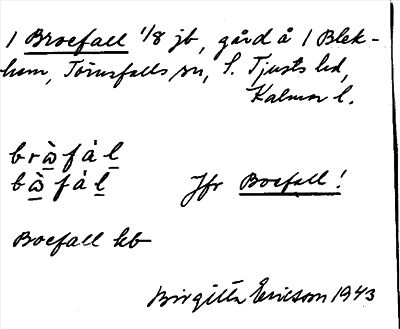 1 Broefall 1/8 jb, gård å 1 Blek-
hem, Törnsfalls sn, S. Tjusts hd,
Kalmar l.
bròfál
bòfál Jfr Boefall!
Boefall kb
Birgitta Ericson 1943